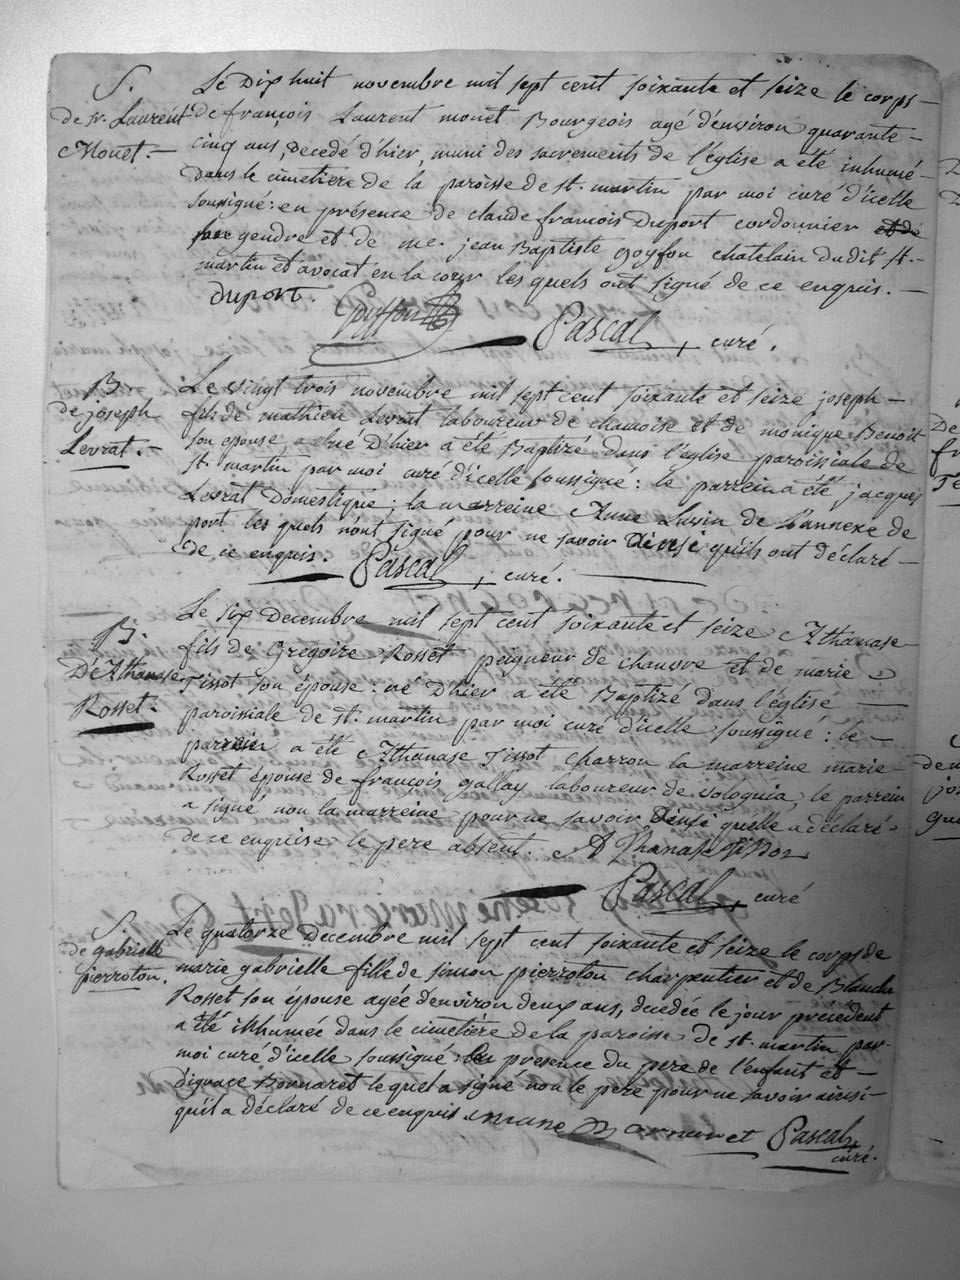 S.
de Sr. Laurent
Monet. —
Le Dix huit novembre mil sept cent soixante et seize le corps —
de françois Laurent monet Bourgeois agé d'environ quarante —
cinq ans, decedé d'hier, muni des sacrements de l'église a été inhumé —
dans le cimetiere de la paroisse de st. martin par moi curé d'icelle
soussigné: en présence de claude françois Duport cordonnier et de
gendre et de me. jean Baptiste goyfon chatelain dudit st. —
martin et avocat en la cour les quels ont signé de ce enquis. —
duport. Goyfon Pascal, curé.
B.
de joseph
Levrat. —
Le vingt trois novembre mil sept cent soixante et seize joseph —
fils de mathieu Levrat laboureur de chamoise et de monique Benoit
son epouse né d'hier a été Baptizé dans l'église paroissiale de
st. martin par moi curé d'icelle soussigné: le parrein a été jacques
Levrat Domestique; la marreine Anne Lusin de l'annexe de
port les quels n'ont signé pour ne savoir ainsi qu'ils ont déclaré —
de ce enquis. Pascal, curé.
B.
D'Athanase
Rosset.
Le six decembre mil sept cent soixante et seize Athanase
fils de Grégoire Rosset peigneur de chanvre et de marie
Tissot son épouse: né d'hier a été Baptizé dans l'église —
paroissiale de st. martin par moi curé d'icelle soussigné: le —
parrein a été Athanase Tissot charron la marreine marie
Rosset épouse de françois gallay laboureur de Sologniа, le parrein
a signé non la marreine pour ne savoir ainsi qu'elle a déclaré
de ce enquise le pere absent. Athanase Tissot
Pascal, curé
S.
de gabrielle
pierroton.
Le quatorze decembre mil sept cent soixante et seize le corps de
marie gabrielle fille de simon pierroton charpentier et de Blanche
Rosset son épouse agée d'environ deux ans, decedée le jour précédent
a été inhumée dans le cimetière de la paroisse de st. martin par
moi curé d'icelle soussigné: en presence du pere de l'enfant et —
d'ignace Bornaret lequel a signé non le pere pour ne savoir ainsi —
qu'il a déclaré de ce enquis Bornaret Pascal
curé.